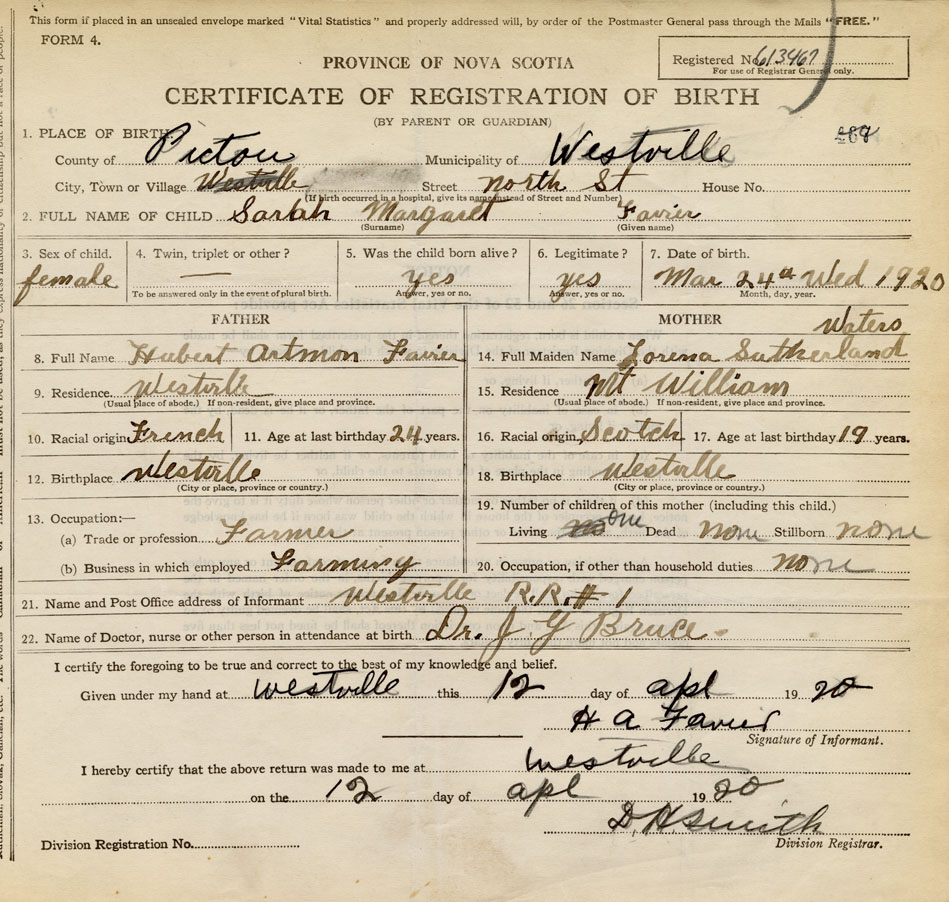 This form if placed in an unsealed envelope marked "Vital Statistics" and properly addressed will, by order of the Postmaster General pass through the Mails "FREE."
FORM 4.
Registered No. 613467
For use of Registrar General only.
PROVINCE OF NOVA SCOTIA
CERTIFICATE OF REGISTRATION OF BIRTH
(BY PARENT OR GUARDIAN)
1. PLACE OF BIRTH
County of Pictou Municipality of Westville
City, Town or Village Westville Street North St House No.
(If birth occurred in a hospital, give its name instead of Street and Number)
2. FULL NAME OF CHILD Sarah Margaret Favier
(Surname) (Given name)
3. Sex of child. 4. Twin, triplet or other? 5. Was the child born alive? 6. Legitimate? 7. Date of birth.
female — yes yes Mar 24th Wed 1920
To be answered only in the event of plural birth. Answer, yes or no. Answer, yes or no. Month, day, year.
FATHER MOTHER
Waters
8. Full Name Hubert Artmon Favier 14. Full Maiden Name Lorena Sutherland
9. Residence Westville 15. Residence Mt William
(Usual place of abode.) If non-resident, give place and province. (Usual place of abode.) If non-resident, give place and province.
10. Racial origin French 11. Age at last birthday 24 years. 16. Racial origin Scotch 17. Age at last birthday 19 years.
12. Birthplace Westville 18. Birthplace Westville
(City or place, province or country.) (City or place, province or country.)
13. Occupation:— 19. Number of children of this mother (including this child.)
(a) Trade or profession Farmer Living one Dead none Stillborn none
(b) Business in which employed Farming 20. Occupation, if other than household duties none
21. Name and Post Office address of Informant Westville R.R. # 1
22. Name of Doctor, nurse or other person in attendance at birth Dr. J G Bruce
I certify the foregoing to be true and correct to the best of my knowledge and belief.
Given under my hand at Westville this 12 day of apl 1920
H A Favier
Signature of Informant.
I hereby certify that the above return was made to me at Westville
on the 12 day of apl 1920
D H Smith
Division Registration No. Division Registrar.